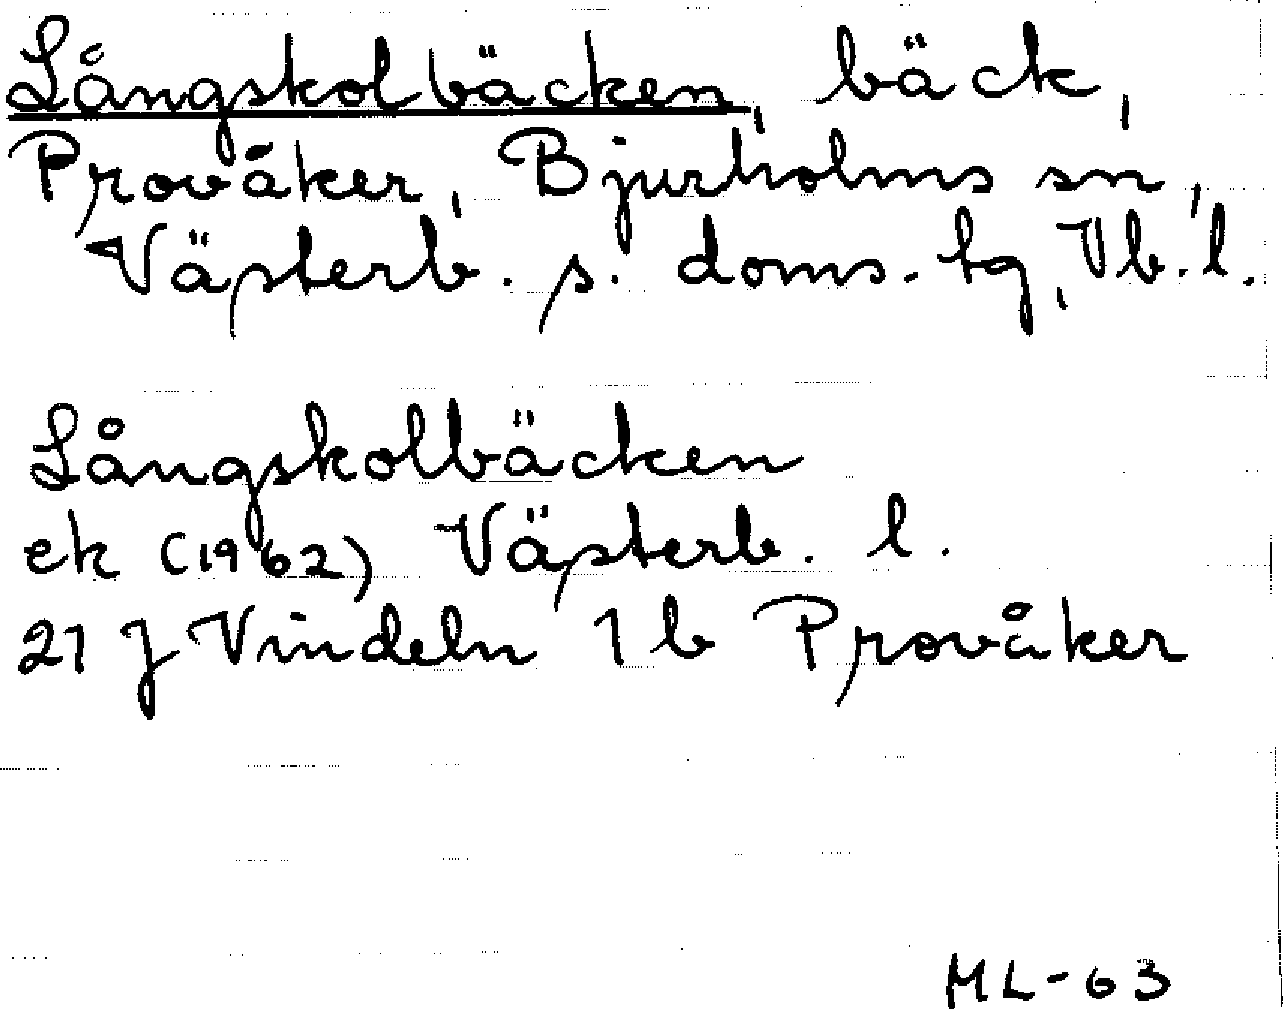 Långskolbäcken, bäck,
Provåker, Bjurholms sn,
Västerb. s. doms. tg, Vb. l.
Långskolbäcken
ek (1962) Västerb. l.
21 J Vindeln 1 b Provåker
ML-63